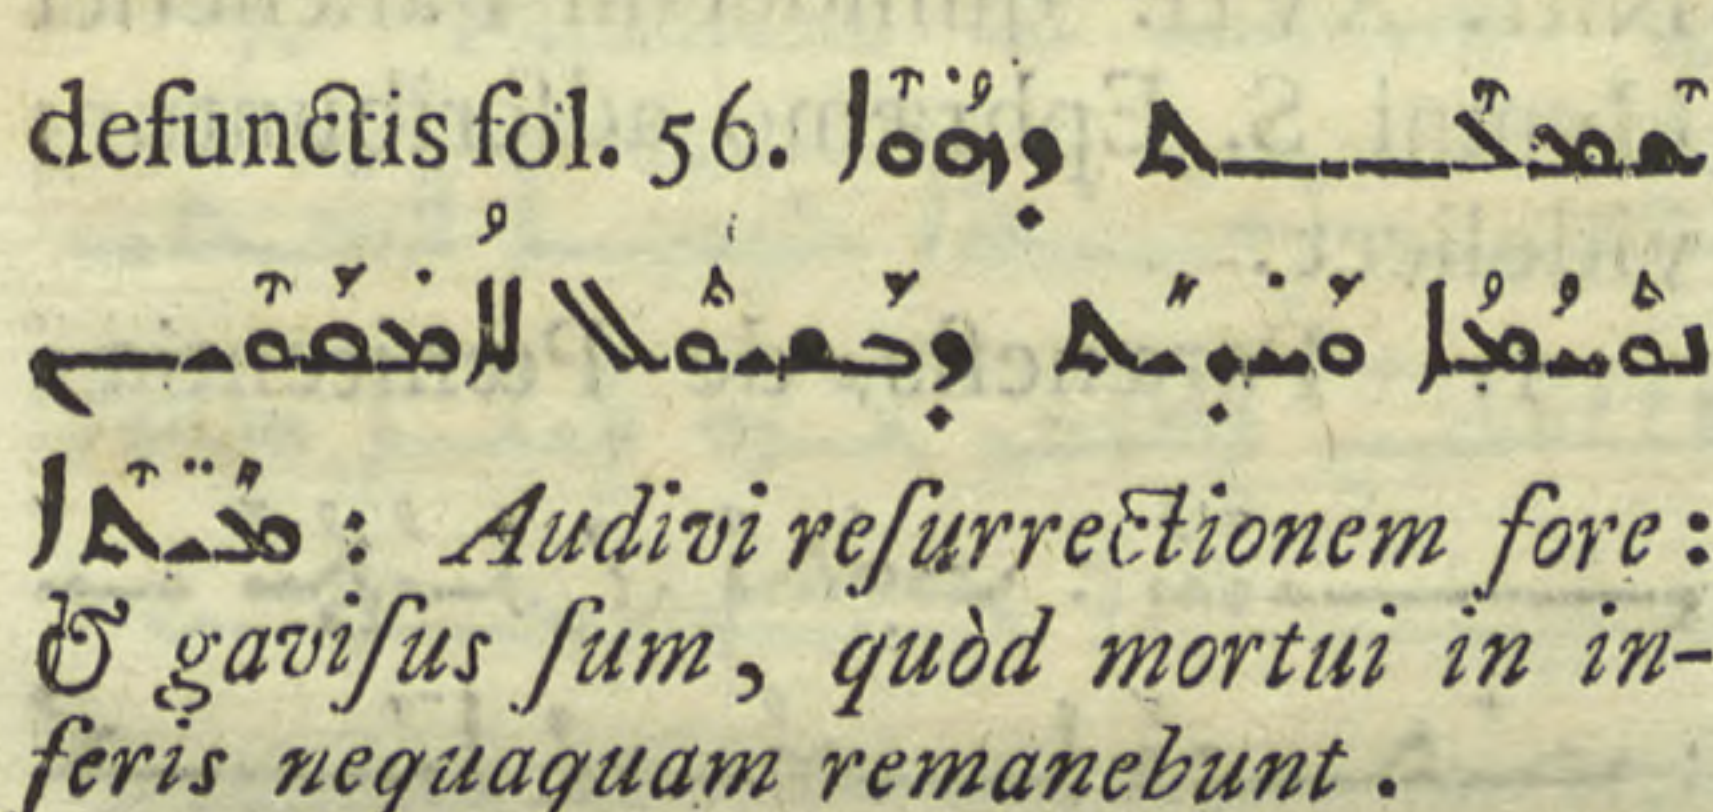 defunctis fol. 56. ܫܡܥܬ ܕܗܘܐ
ܢܘܚܡܐ ܘܚܕܝܬ ܕܒܫܝܘܠ ܠܐ ܡܩܘܝܢ
ܡܝ̈ܬܐ : Audivi reſurrectionem fore :
& gaviſus ſum, quòd mortui in in-
feris nequaquam remanebunt .